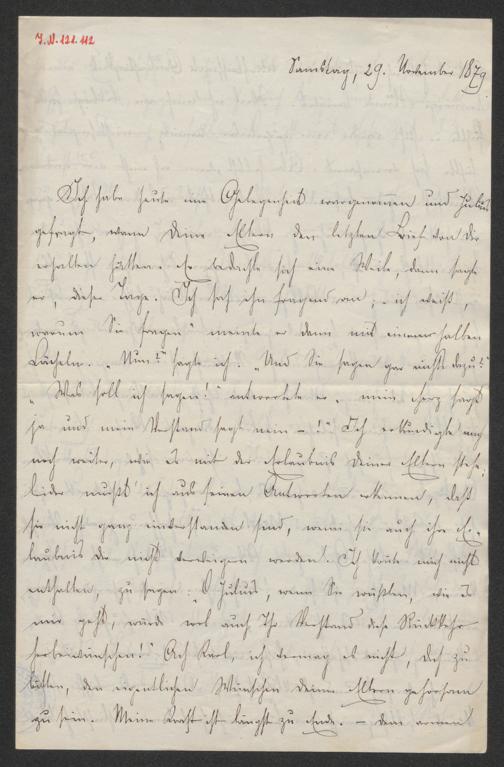 I. N. 121.112
Samstag, 29. November 1879
Ich habe heute eine Gelegenheit wargenommen und Julius
gefragt, wann Deine Eltern den letzten Brief von Dir
erhalten hätten. Er bedachte sich eine Weile, dann sagte
er dieser Tage. Ich sah ihn fragend an; „ich weiß,
warum Sie fragen“ meinte er dann mit einem halben
Lächeln. „Nun?“ sagte ich. „Und Sie sagen gar nichts dazu?“
„Was soll ich sagen!“ antwortete er, „mein Herz sagt
ja und mein Verstand sagt nein – !“ Ich erkundigte mich
noch weiter, wie es mit der Erlaubnis Deiner Eltern stehe,
leider mußt' ich aus seinen Antworten erkennen, daß
sie nicht ganz einverstanden sind, wenn sie auch ihre Er-
laubnis Dir nicht verweigern werden. Ich konte mich nicht
enthalten, zu sagen: „O Julius, wenn Sie wüßten, wie es
mir geht, würde wol auch Ihr Verstand diese Rückkehr
herbeiwünschen!“ Ach Karl, ich vermag es nicht, Dich zu
bitten, den eigentlichen Wünschen Deiner Eltern gehorsam
zu sein. Meine Kraft ist längst zu Ende. – dem armen